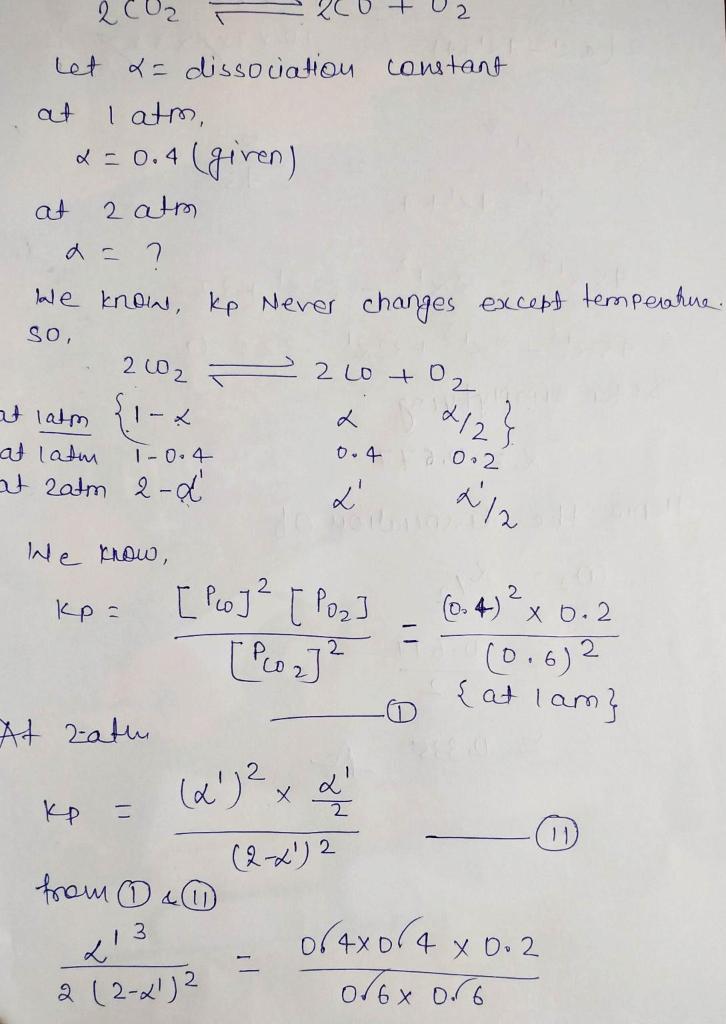 2CO2 ⇌ 2CO + O2
Let α = dissociation constant
at 1 atm,
α = 0.4 (given)
at 2 atm
α = ?
We know, Kp Never changes except temperature.
so,
2CO2 ⇌ 2CO + O2
at 1atm {1-α α α/2}
at 1atm 1-0.4 0.4 0.2
at 2atm 2-α' α' α'/2
We know,
Kp = [PCO]² [PO2] / [PCO2]² = (0.4)² x 0.2 / (0.6)²
{at 1am}
— I
At 2atm
Kp = (α')² x α'/2 / (2-α')² — II
from I & II
α'³ / 2(2-α')² = 0.4x0.4 x 0.2 / 0.6 x 0.6